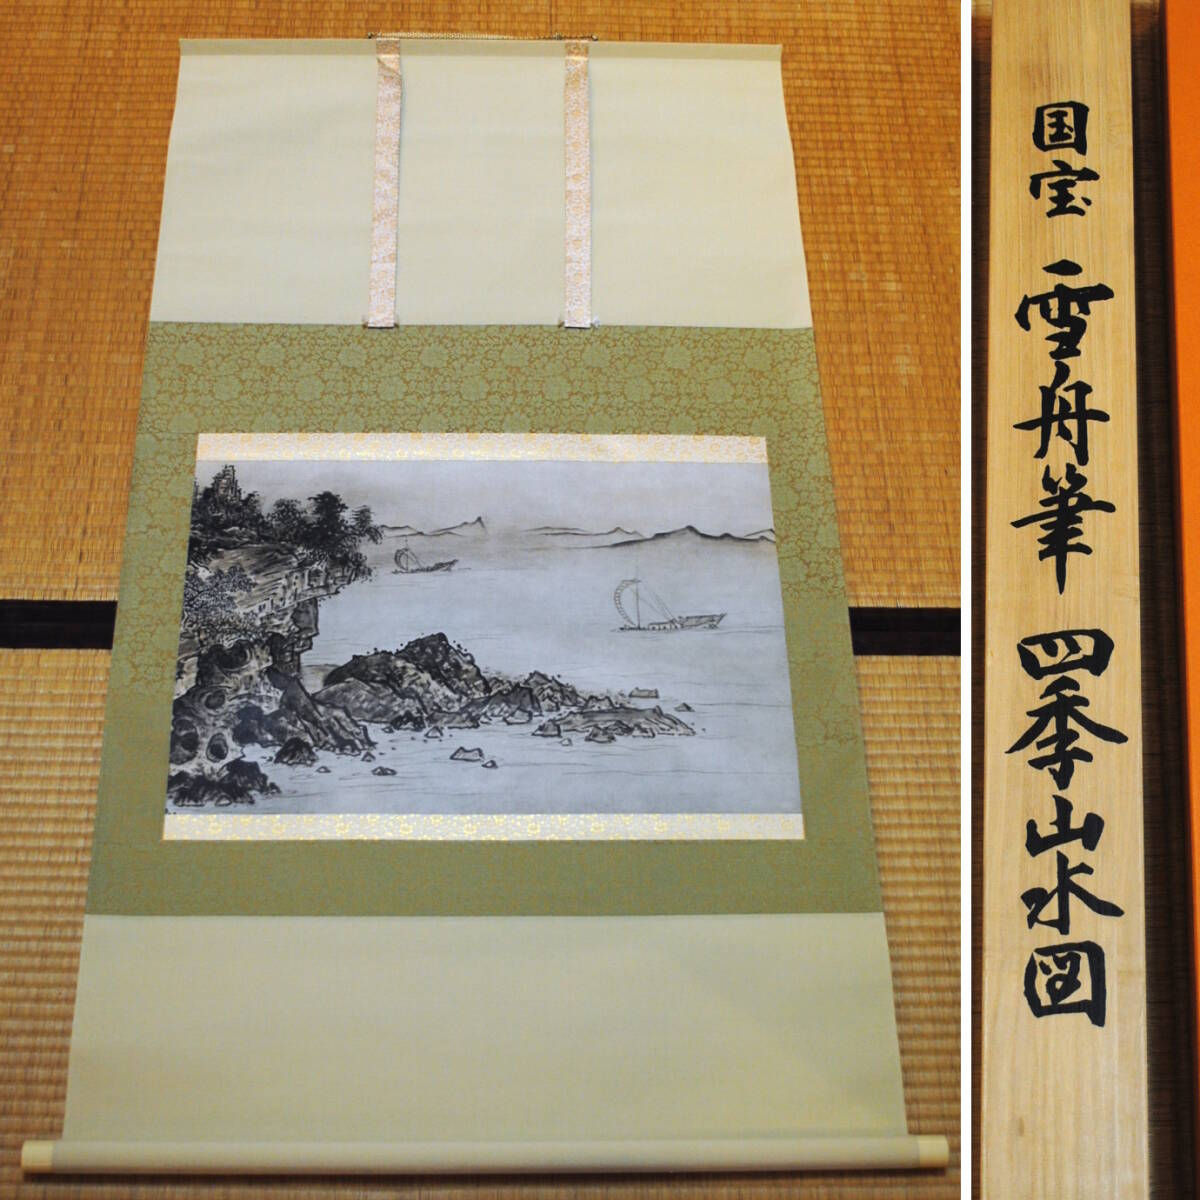 国宝 雪舟筆 四季山水図